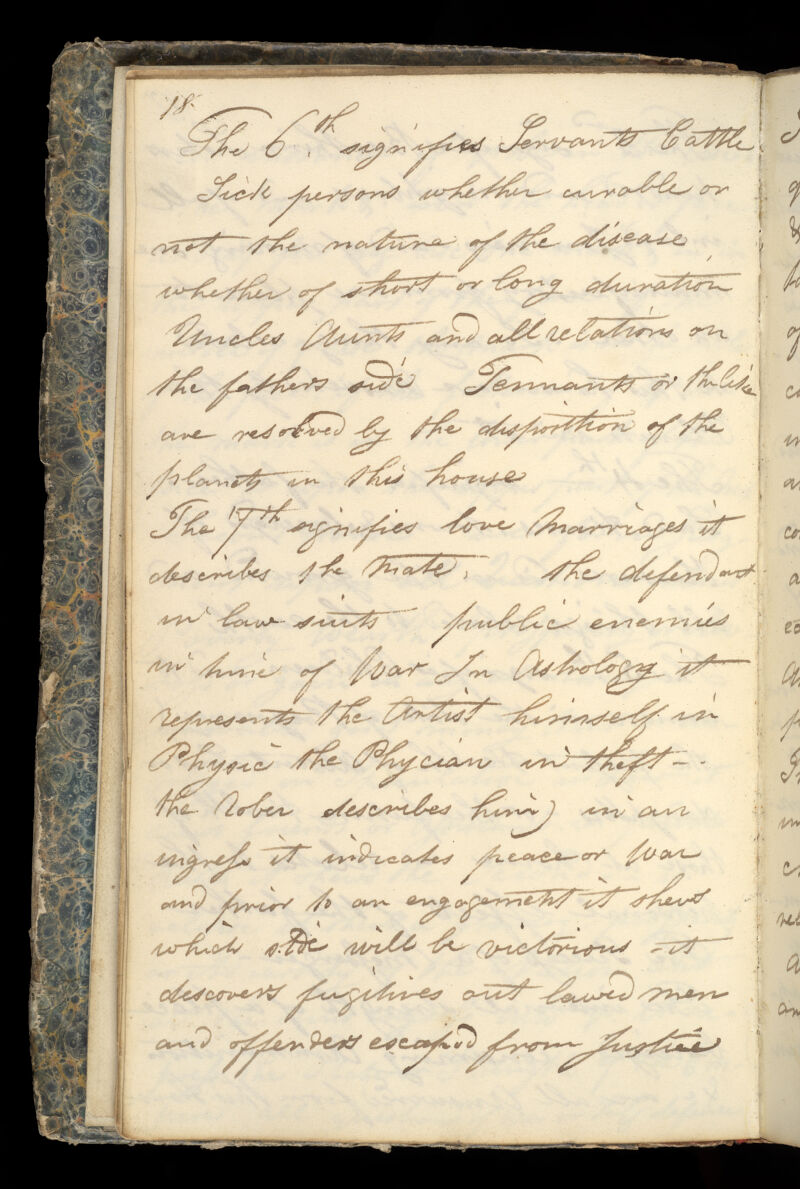 18.
The 6.th signifies Servants Cattle
Sick persons whether curable or
not the nature of the disease
whether of short or long duration
Uncles Aunts and all relations on
the fathers side Tennants or the like
are resolved by the disposition of the
planets in this house
The 7th signifies love Marriages it
describes the Mate, the defendant
in law suits public enemies
in time of War In Astrology it
represents the Artist himself in
Physic the Phycian in theft -.
the Rober describes him) in an
ingress it indicates peace or War
and prior to an engagement it shews
which side will be victorious - it
descovers fugitives out lawed men
and offenders escaped from Justice